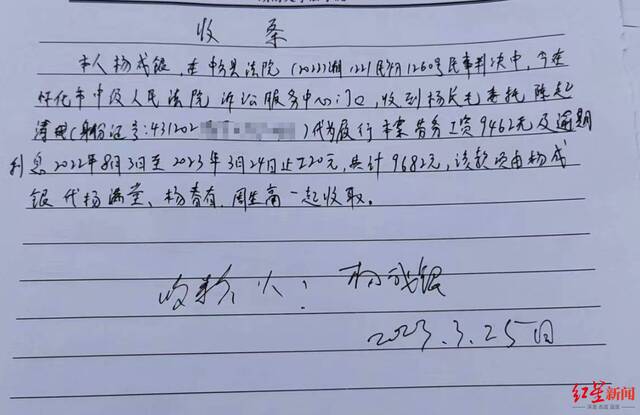 收条
本人杨成银,在中方县法院(2022)湘1221民初1260号民事判决中,今在
怀化市中级人民法院诉讼服务中心门口,收到杨长毛委托陈起
清用(身份证号:431202 )代为履行本案劳务工资9462元及逾期
利息2022年8月3日至2023年3月24日止220元,共计9682元,该款项由杨成
银代杨满堂、杨春有、周生高一起收取。
收款人:杨成银
2023.3.25日
红星新闻
深度 态度 温度